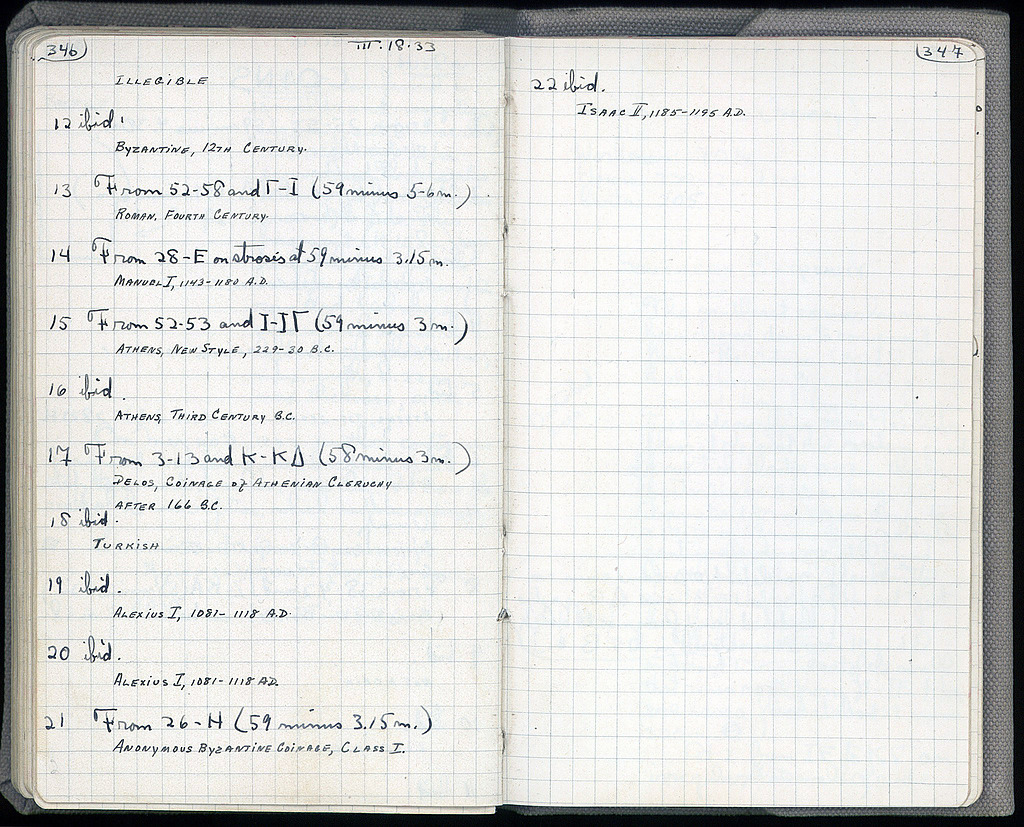 346
III.18.33
ILLEGIBLE
12 ibid.
BYZANTINE, 12TH CENTURY.
13 From 52-58 and Γ-I (59 minus 5-6m.)
ROMAN, FOURTH CENTURY.
14 From 28-E on strosis at 59 minus 3.15m.
MANUEL I, 1143-1180 A.D.
15 From 52-53 and I-IΓ (59 minus 3m.)
ATHENS, NEW STYLE, 229-30 B.C.
16 ibid.
ATHENS, THIRD CENTURY B.C.
17 From 3-13 and K-KΔ (58 minus 3m.)
DELOS, COINAGE of ATHENIAN CLERUCHY
AFTER 166 B.C.
18 ibid.
TURKISH
19 ibid.
ALEXIUS I, 1081-1118 A.D.
20 ibid.
ALEXIUS I, 1081-1118 A.D.
21 From 26-H (59 minus 3.15m.)
ANONYMOUS BYZANTINE COINAGE, CLASS I.
347
22 ibid.
ISAAC II, 1185-1195 A.D.